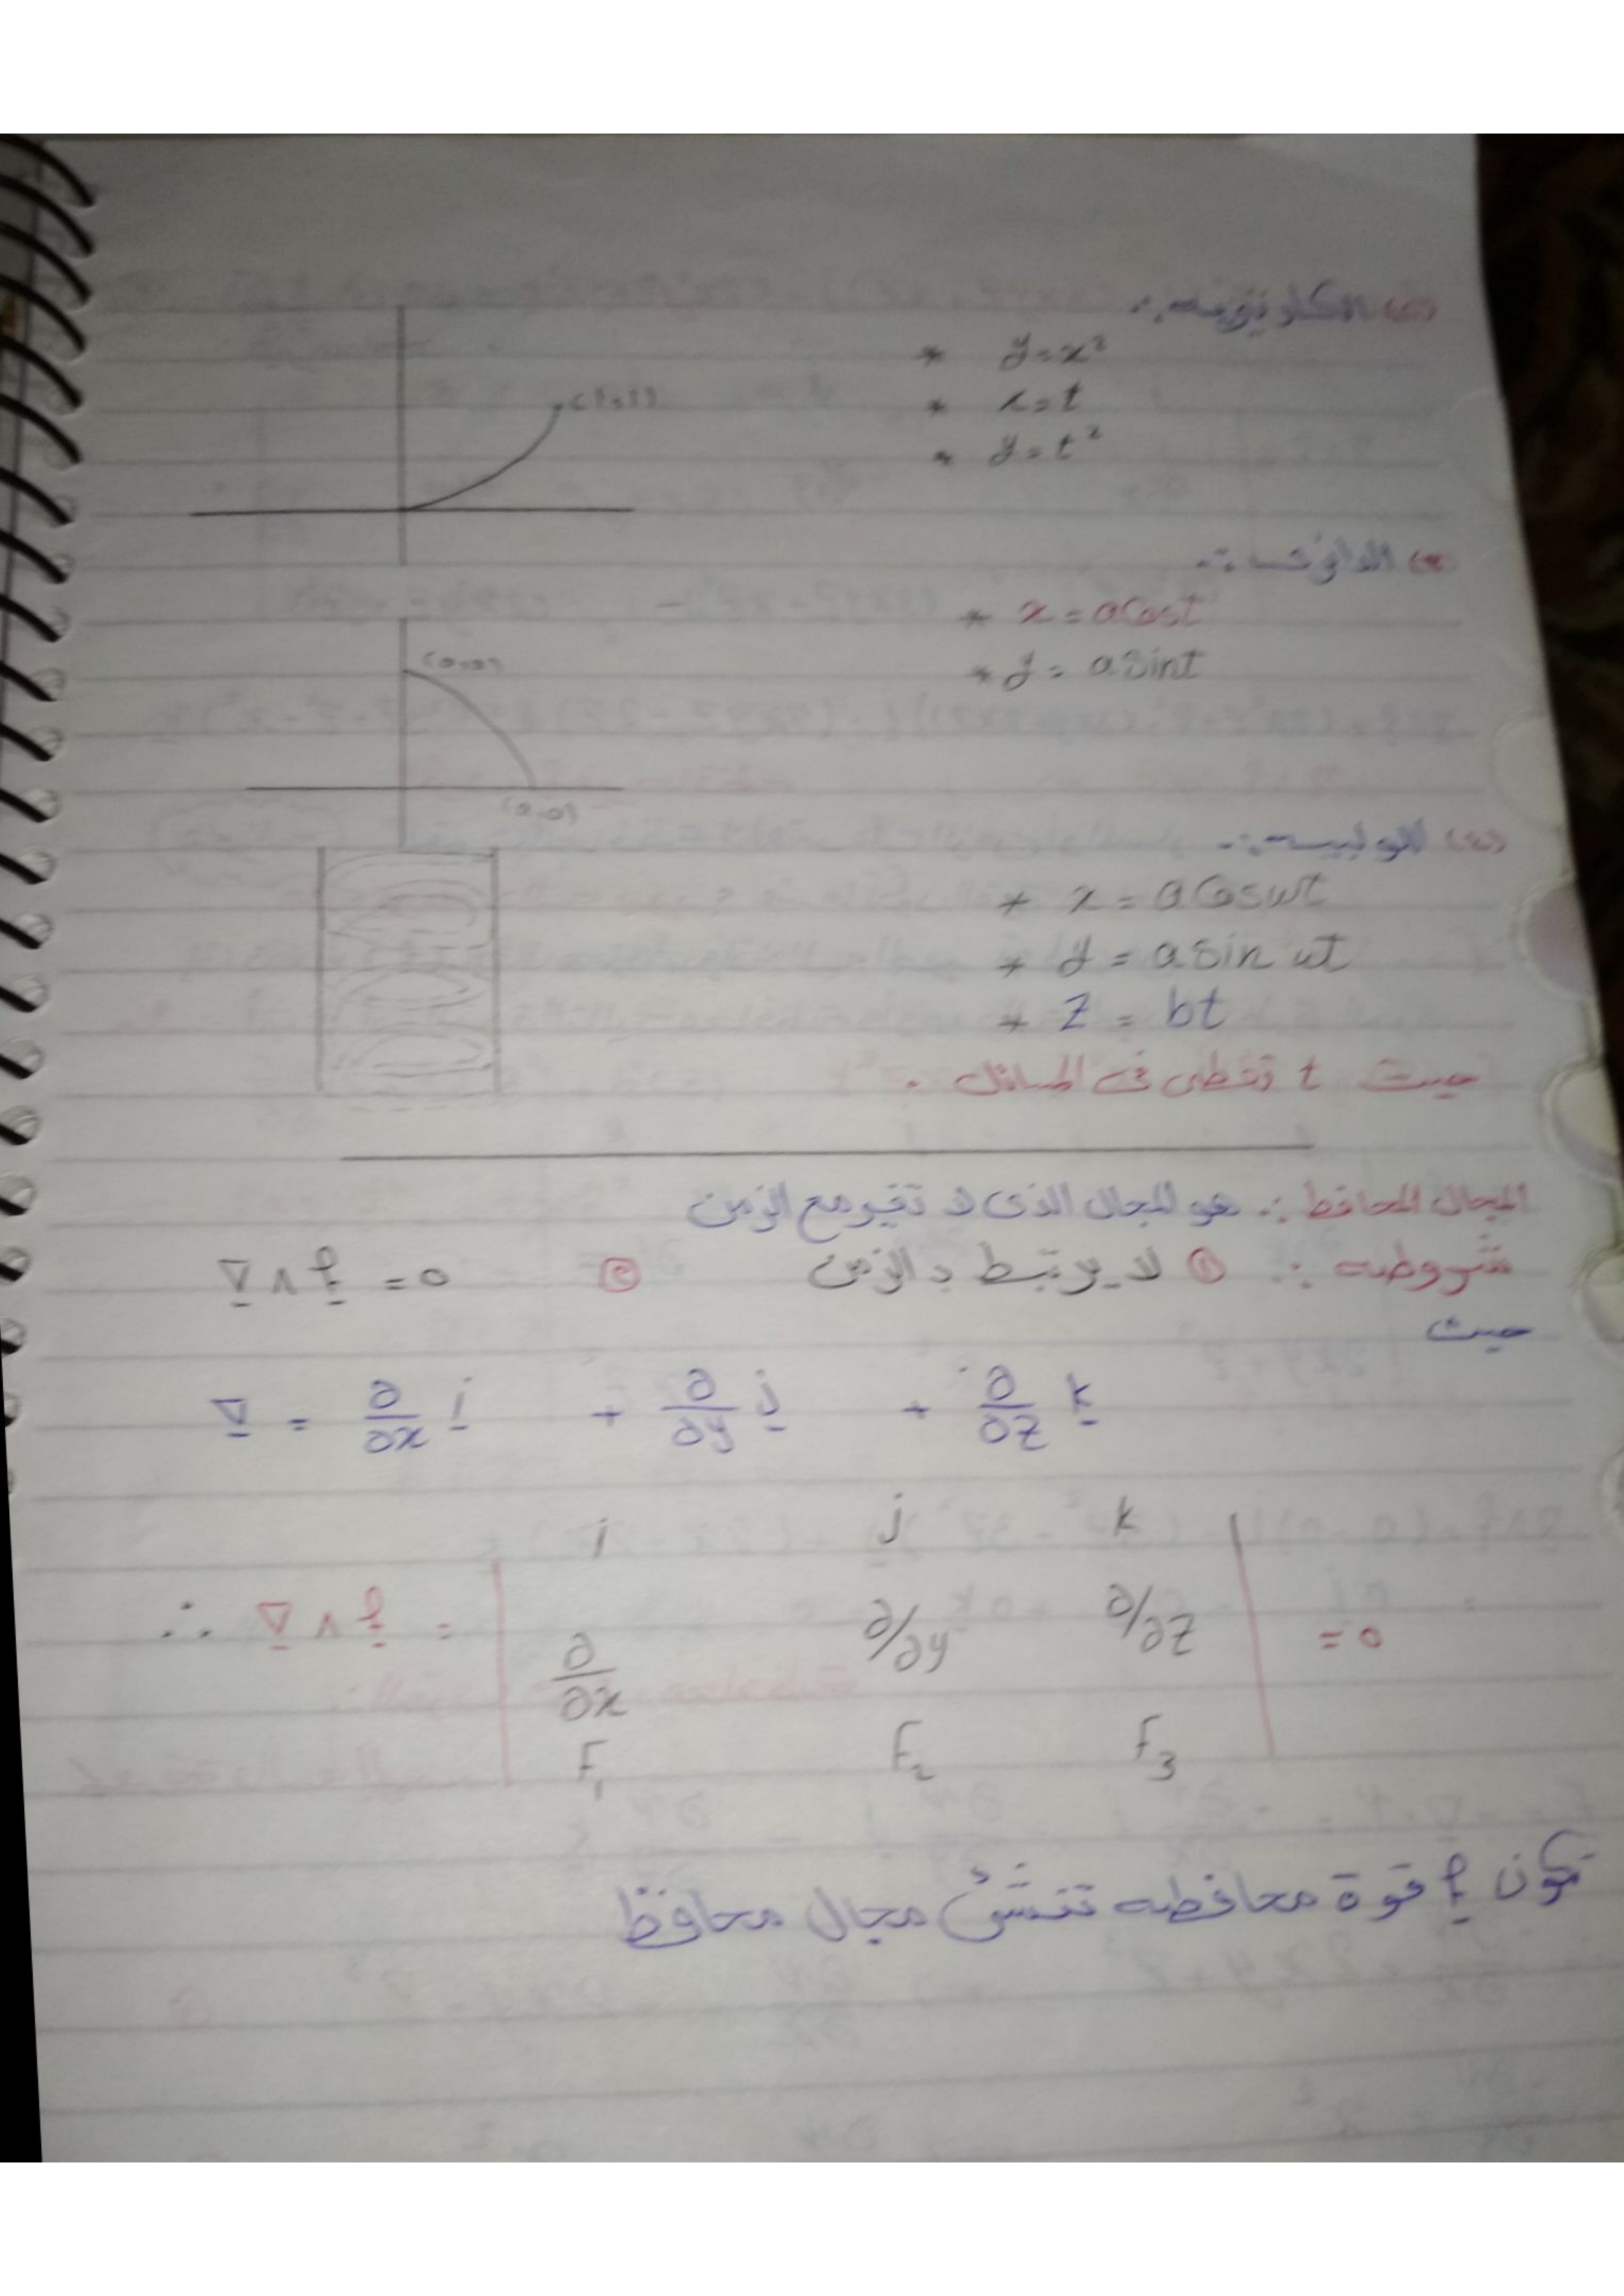 (٢) الكارتيزيه :-
* y = x²
* x = t
* y = t²
(1,1)
(٣) الدائريه :-
* x = a Cos t
* y = a Sin t
(٤) اللولبيه :-
* x = a Cos wt
* y = a sin wt
* Z = bt
حيث t تعطى فى المسائل .
المجال المحافظ :- هو المجال الذى لا تتغير مع الزمن
شروطه :- ① لا يرتبط بالزمن ② ∇ ∧ F = 0
حيث
∇ = ∂/∂x i + ∂/∂y j + ∂/∂Z k
i j k
∴ ∇ ∧ F = ∂/∂x ∂/∂y ∂/∂Z = 0
F₁ F₂ F₃
تكون F قوة محافظه تنشئ مجال محافظ